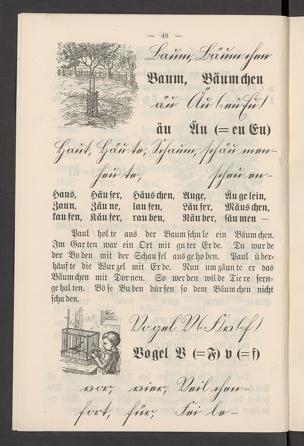 — 48 —
Baum, Bäumchen
Baum, Bäumchen
äu Äu (eu Eu)
äu Äu (= eu Eu)
Haut, Häute, Schaum, schäumen–
heute, scheuen–
Haus, Häuser, Häuschen, Auge, Äuglein,
Zaun, Zäune, laufen, Läufer, Mäuschen,
kaufen, Käufer, rauben, Räuber, säumen —
Paul holte aus der Baumschule ein Bäumchen.
Im Garten war ein Ort mit guter Erde. Da wurde
der Boden mit der Schaufel ausgehoben. Paul über-
häufte die Wurzel mit Erde. Nun umzäunte er das
Bäumchen mit Dornen. So werden wilde Tiere fern-
gehalten. Böse Buben dürfen so dem Bäumchen nicht
schaden.
Vogel V
Vogel V (= F) v (= f)
vor, vier, Veilchen–
fort, für, Feile–